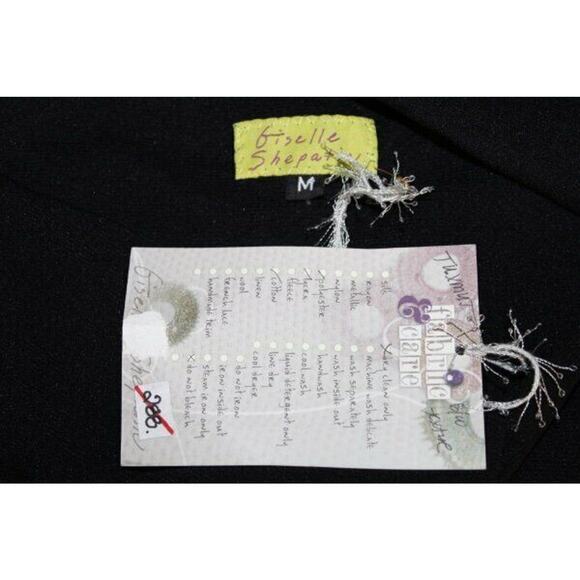 Giselle
Shepat
M
fabric
& care
silk
rayon
metallic
nylon
polyester
lycra
fleece
cotton
linen
wool
french lace
handmade trim
X dry clean only
machine wash delicate
wash separately
wash inside out
handwash
cool wash
liquid detergent only
line dry
cool dryer
do not iron
iron inside out
steam iron only
X do not bleach
288.